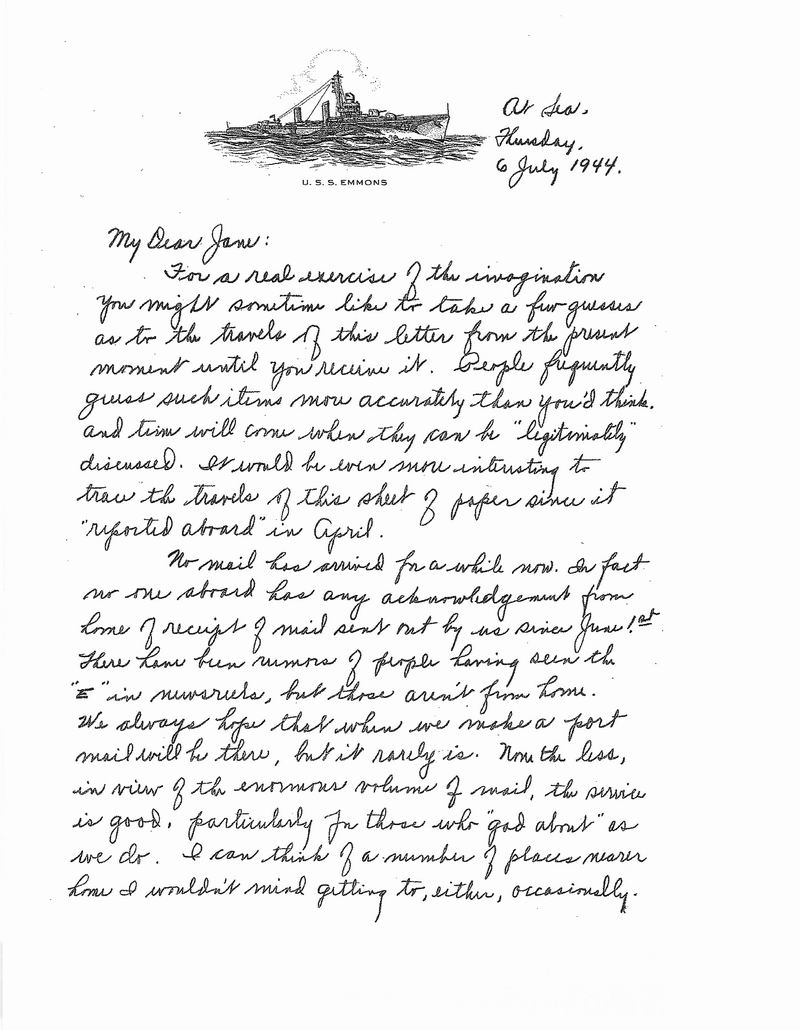 At Sea,
Thursday,
6 July 1944.
U. S. S. EMMONS
My Dear Jane:
For a real exercise of the imagination
you might sometime like to take a few guesses
as to the travels of this letter from the present
moment until you receive it. People frequently
guess such items more accurately than you'd think.
and time will come when they can be "legitimately"
discussed. It would be even more interesting to
trace the travels of this sheet of paper since it
"reported aboard" in April.
No mail has arrived for a while now. In fact
no one aboard has any acknowledgement from
home of receipt of mail sent out by us since June 1st.
There have been rumors of people having seen the
"E" in newsreels, but those aren't from home.
We always hope that when we make a port
mail will be there, but it rarely is. None the less,
in view of the enormous volume of mail, the service
is good, particularly for those who "gad about" as
we do. I can think of a number of places nearer
home I wouldn't mind getting to, either, occasionally.